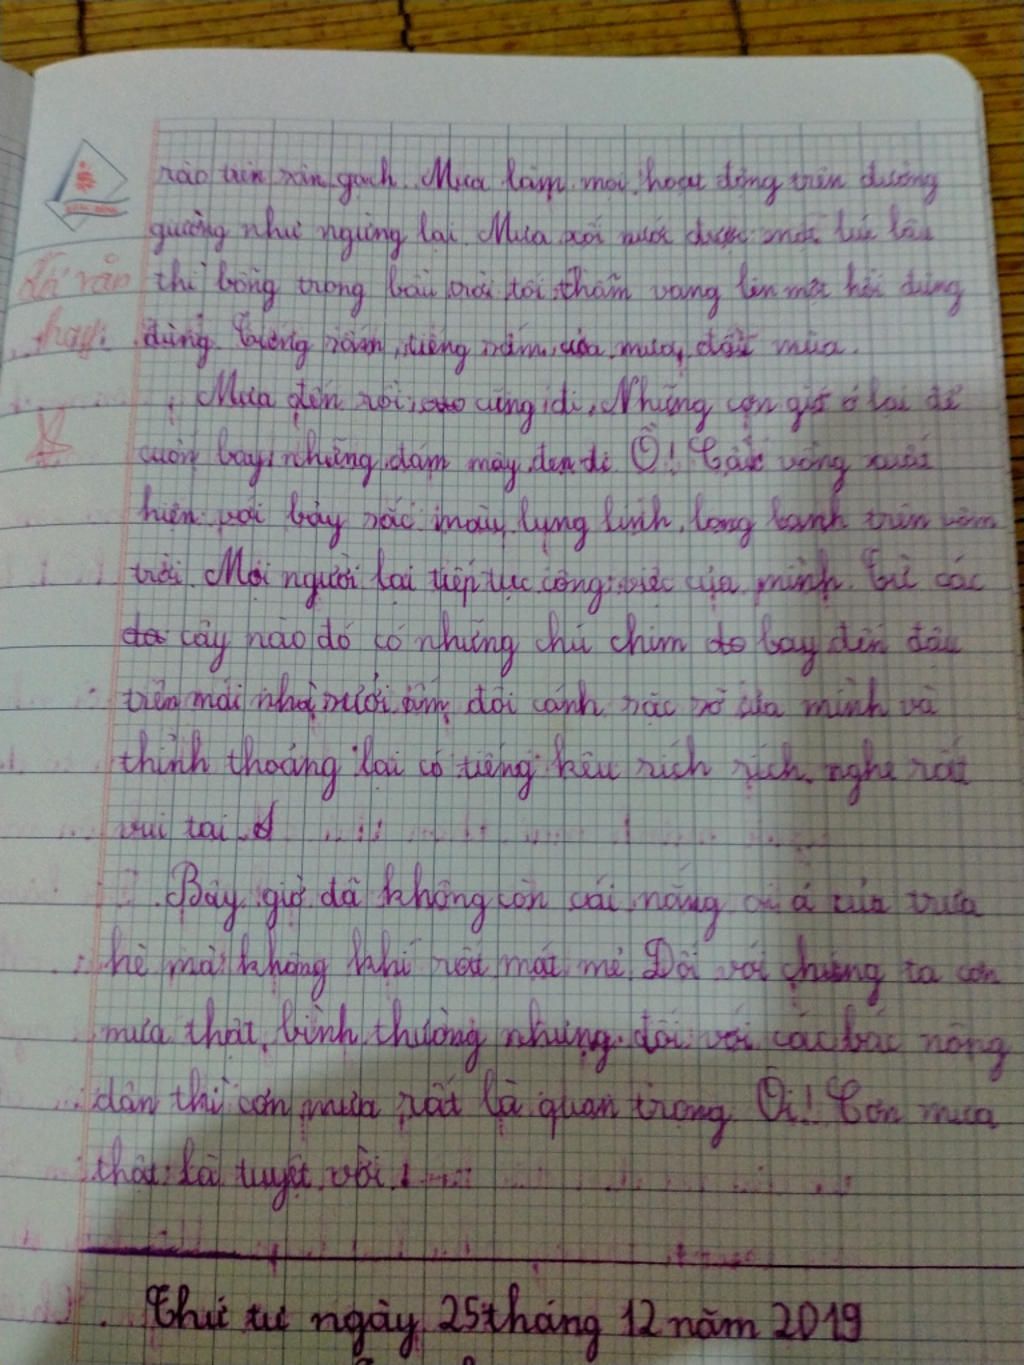 rào trên sân gạch. Mưa làm mọi hoạt động trên đường
giường như ngừng lại. Mưa xối xuối được một lúc lâu
thì bỗng trong bầu trời tối thẫm vang lên một hồi đùng
đùng. Tiếng sấm, tiếng sấm của mưa đầu mùa.
Mưa đến rồi cũng đi. Những cơn gió ở lại để
cuốn bay những đám mây đen đi. Ồ! Cầu vồng xuất
hiện với bảy sắc màu lung linh, long lanh trên vòm
trời. Mọi người lại tiếp tục công việc của mình. Từ các
cây nào đó có những chú chim bay đến đậu
trên mái nhà sưởi ấm đôi cánh sặc sỡ của mình và
thỉnh thoảng lại có tiếng kêu rích rích nghe rất
vui tai.
Bây giờ đã không còn cái nóng oi ả của trưa
hè mà không khí rất mát mẻ. Đối với chúng ta cơn
mưa thật bình thường nhưng đối với các bác nông
dân thì cơn mưa rất là quan trọng. Ôi! Cơn mưa
thật là tuyệt vời!
Thứ tư ngày 25 tháng 12 năm 2019
hay: